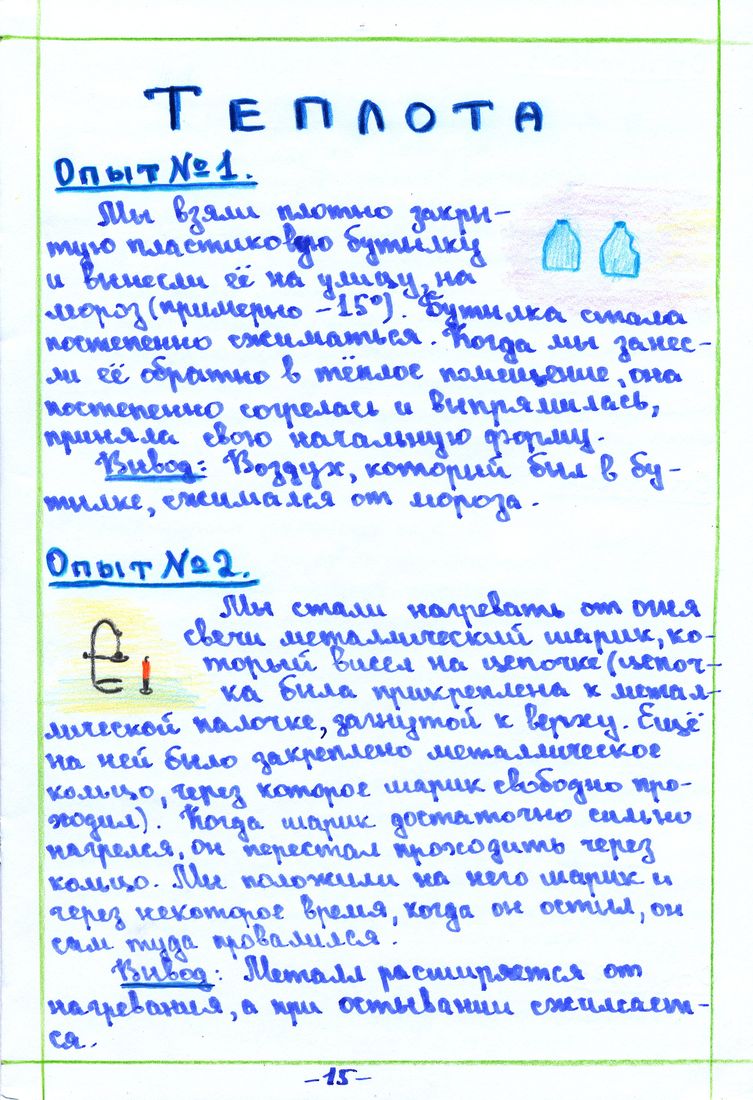 ТЕПЛОТА
Опыт №1.
Мы взяли плотно закры-
тую пластиковую бутылку
и вынесли её на улицу, на
мороз (примерно -15°). Бутылка стала
постепенно сжиматься. Когда мы занес-
ли её обратно в тёплое помещение, она
постепенно согрелась и выпрямилась,
приняла свою начальную форму.
Вывод: Воздух, который был в бу-
тылке, сжимался от мороза.
Опыт №2.
Мы стали нагревать от огня
свечи металлический шарик, ко-
торый висел на цепочке (цепоч-
ка была прикреплена к метал-
лической палочке, загнутой к верху. Ещё
на ней было закреплено металлическое
кольцо, через которое шарик свободно про-
ходил). Когда шарик достаточно сильно
нагрелся, он перестал проходить через
кольцо. Мы положили на него шарик и
через некоторое время, когда он остыл, он
сам туда провалился.
Вывод: Металл расширяется от
нагревания, а при остывании сжимает-
ся.
-15-